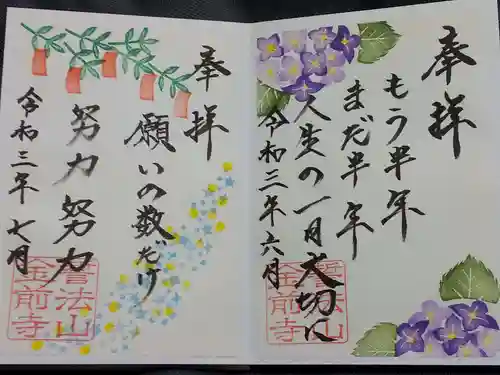 奉拝
もう半年
まだ半年
人生の一日大切に
令和三年六月
誓法山
金前寺
奉拝
願いの数だけ
努力努力
令和三年七月
誓法山
金前寺